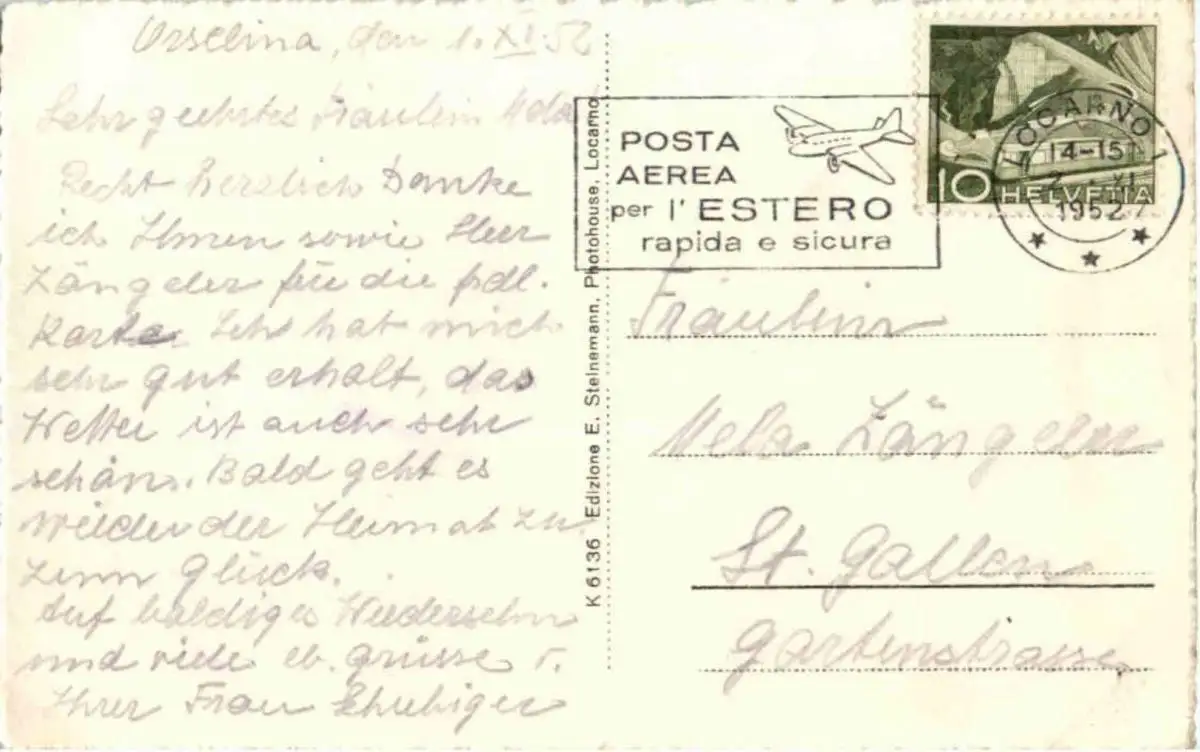 Orselina, den 1. XI. 52
Sehr geehrtes Fräulein Mela!
Recht Herzlich Danke
ich Ihnen sowie Herr
Zängeler für die frdl.
Karte. Ich hat mich
sehr gut erholt, das
Wetter ist auch sehr
schön. Bald geht es
wieder der Heimat zu
zum Glück.
Auf baldiges Wiedersehn
und viele grüsse v.
Ihrer Frau Schubiger
K 6136 Edizione E. Steinemann, Photohouse, Locarno
POSTA
AEREA
per l'ESTERO
rapida e sicura
10 HELVETIA
LOCARNO 1
14-15
2. XI.
1952
Fräulein
Mela Zängeler
St. Gallen
Gartenstrasse